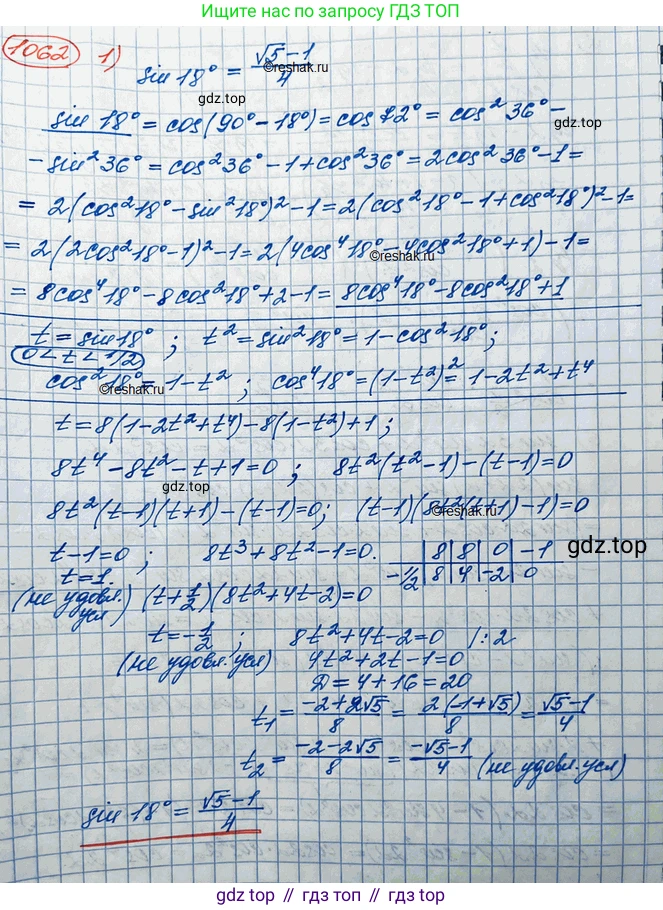 Ищите ответы по запросу ГДЗ ТОП
1062 1) sin 18° = (√5 - 1)/4
gdz.top
©reshak.ru
sin 18° = cos(90° - 18°) = cos 72° = cos² 36° -
- sin² 36° = cos² 36° - 1 + cos² 36° = 2cos² 36° - 1 =
= 2(cos² 18° - sin² 18°)² - 1 = 2(cos² 18° - 1 + cos² 18°)² - 1 =
©reshak.ru
= 2(2cos² 18° - 1)² - 1 = 2(4cos⁴ 18° - 4cos² 18° + 1) - 1 =
©reshak.ru
= 8cos⁴ 18° - 8cos² 18° + 2 - 1 = 8cos⁴ 18° - 8cos² 18° + 1
t = sin 18° ; t² = sin² 18° = 1 - cos² 18° ;
0 < t < 1/2
cos² 18° = 1 - t² ; cos⁴ 18° = (1 - t²)² = 1 - 2t² + t⁴
©reshak.ru
t = 8(1 - 2t² + t⁴) - 8(1 - t²) + 1 ;
8t⁴ - 8t² - t + 1 = 0 ; 8t²(t² - 1) - (t - 1) = 0
gdz.top
8t²(t - 1)(t + 1) - (t - 1) = 0 ; (t - 1)(8t²(t + 1) - 1) = 0
©reshak.ru
t - 1 = 0 ; 8t³ + 8t² - 1 = 0. | 8 | 8 | 0 | -1
gdz.top
t = 1. -1/2 | 8 | 4 | -2 | 0
(не удовл. усл) (t + 1/2)(8t² + 4t - 2) = 0
t = -1/2 ; 8t² + 4t - 2 = 0 /: 2
(не удовл. усл) 4t² + 2t - 1 = 0
D = 4 + 16 = 20
t₁ = (-2 + 2√5)/8 = 2(-1 + √5)/8 = (√5 - 1)/4
t₂ = (-2 - 2√5)/8 = (-√5 - 1)/4 (не удовл. усл)
sin 18° = (√5 - 1)/4
gdz.top // гдз.топ // gdz.top // гдз.топ